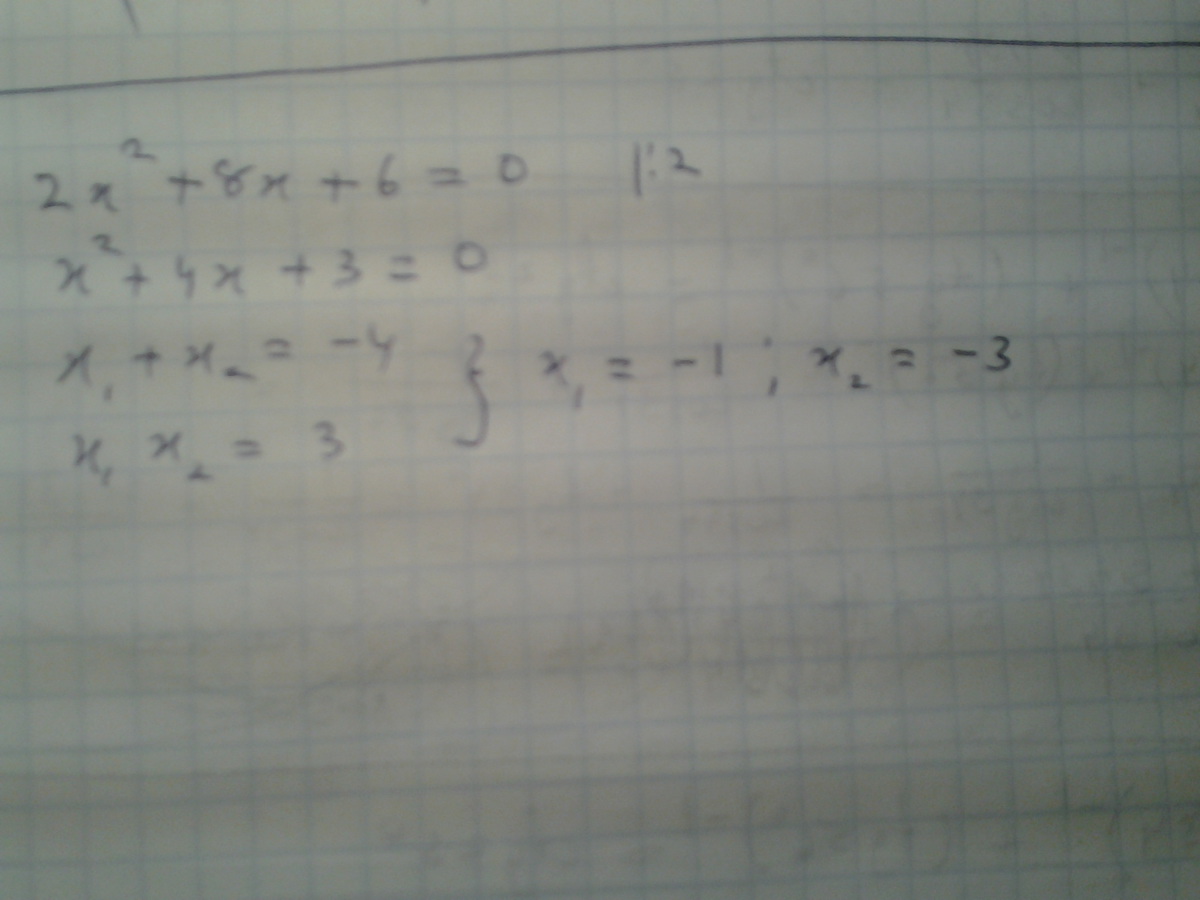 2x² + 8x + 6 = 0 |:2
x² + 4x + 3 = 0
x₁ + x₂ = -4 } x₁ = -1 ; x₂ = -3
x₁ x₂ = 3